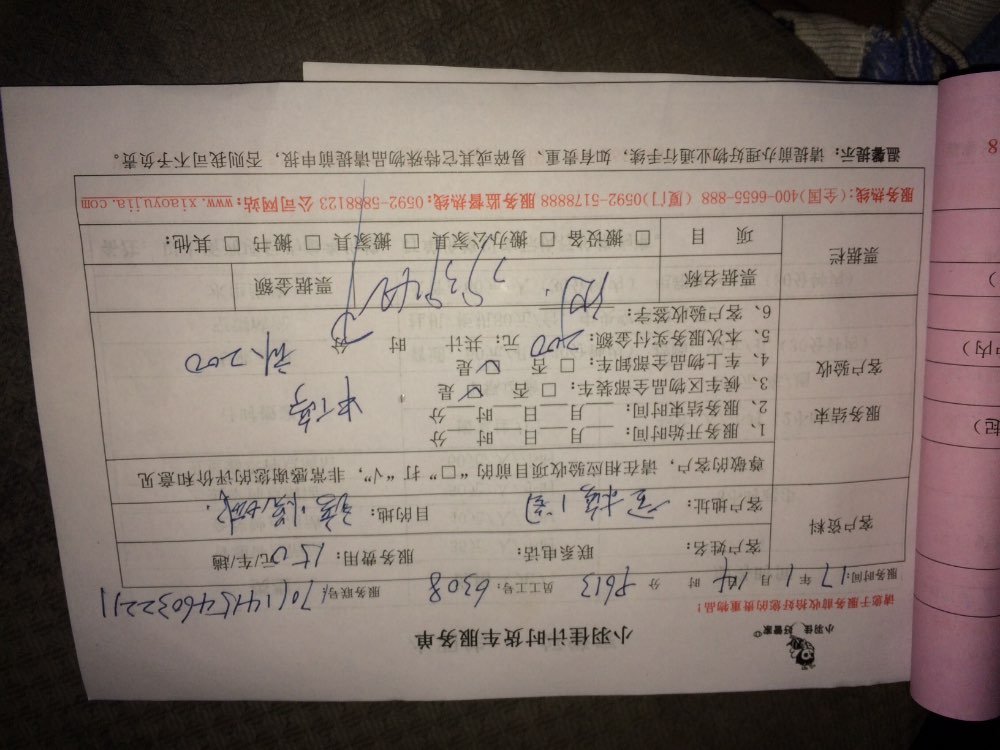 小羽佳 好管家
小羽佳计时货车服务单
请您于服务前收拾好您的贵重物品！
服务时间：17年1月14 时 分 P613 员工号：6308 服务联号：
客户资料
客户姓名： 联系电话： 服务费用：150元/车趟
客户地址： 目的地：
尊敬的客户，请在相应验收项目前的“□”打“√”，非常感谢您的评价和意见
服务结束
客户验收
1、服务开始时间： 月 日 时 分
2、服务结束时间： 月 日 时 分
3、候车区物品全部装：□ 否 ☑ 是
4、车上物品全部卸车：□ 否 ☑ 是
5、本次服务实付金额：200 元；共计 时 分
6、客户验收签字：
补200
票据栏
票据名称 票据金额
项 目 □ 搬设备 □ 搬办公家具 □ 搬家具 □ 搬书 □ 其他：
服务热线：(全国)400-6655-888 (厦门)0592-5178888 服务监督热线：0592-5888123 公司网站：www.xiaoyujia.com
温馨提示：请提前办理好物业通行手续，如有贵重、易碎或其它特殊物品请提前申报，否则我司不予负责。